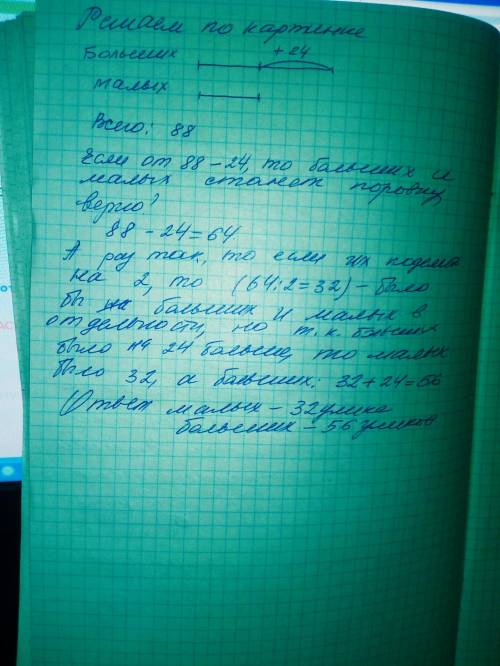 Решаем по картинке
Больших +24
малых
Всего: 88
Если от 88-24, то больших и
малых станет поровну,
верно?
88-24=64
А раз так, то если их поделить
на 2, то (64:2=32) - было
бы больших и малых в
отдельности, но т.к. больших
было на 24 больше, то малых
было 32, а больших: 32+24=56
Ответ малых - 32
больших - 56